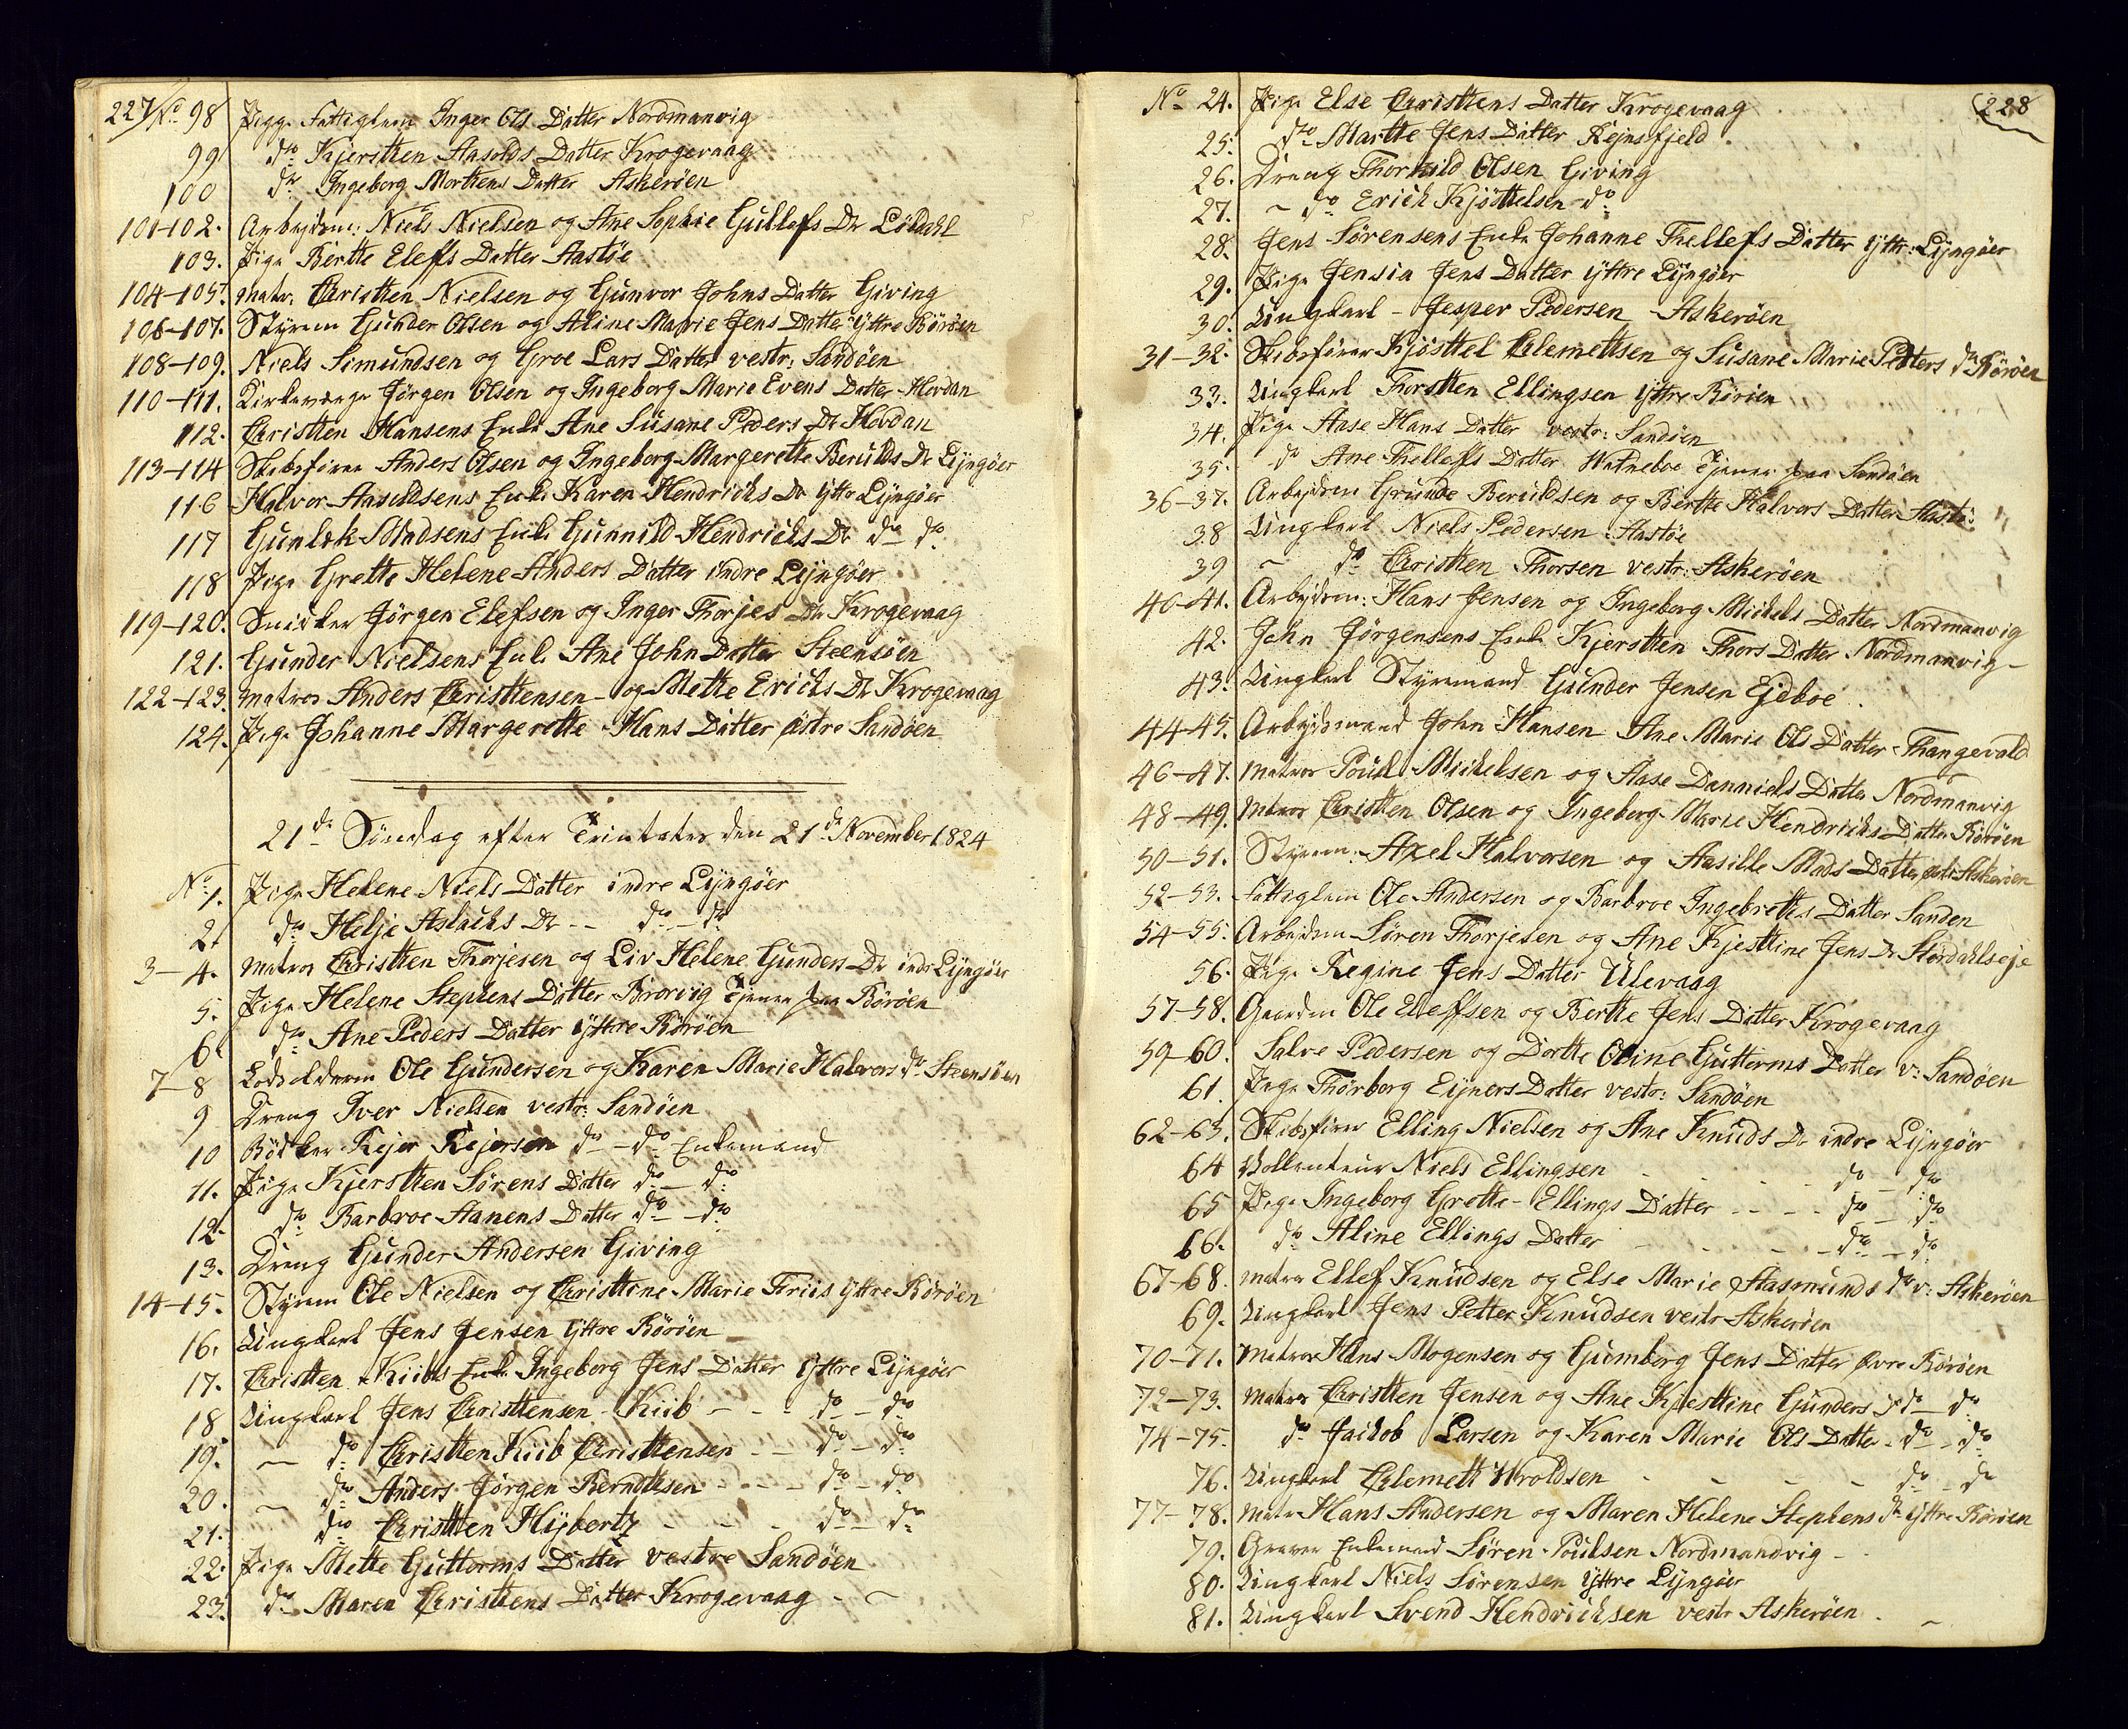 227/ No 98 Pige Fattiglem Inger Ols Datter Nordmanvig
99 do Kjerstten Aasolds Datter Krogevaag
100 do Ingeborg Morttens Datter Askerøen
101-102. Arbejdsm: Niels Nielsen og Ane Sophie Gullefs Dr Löldahl
103. Pige Bertte Elefs Datter Aastøe
104-105. Matr: Christten Nielsen og Gunvor Johns Datter Giving
106-107. Styrem Gunder Olsen og Aline Marie Jens Datter Yttre Börøen
108-109. Niels Simundsen og Groe Lars Datter vestr: Sandøen
110-111. Kirkeværge Jørgen Olsen og Ingeborg Marie Evens Datter Hordan
112. Christten Hansens Enke Ane Susane Peders Dr Hordan
113-114 Skibsfører Anders Olsen og Ingeborg Margerette Berulds Dr Lyngøer
116 Halvor Aasuldsens Enke Karen Hendrichs Dr Ytt: Lyngøer
117 Gunlek Madsens Enke Gunnild Hendrichs Dr do do
118 Pige Grette Helene Anders Datter indre Lyngøer
119-120. Snidker Jörgen Elefsen og Inger Thorjes Dr Krogevaag
121. Gunder Nielsens Enke Ane John Datter Steensøen
122-123. Matros Anders Christtensen og Mette Erichs Dr Krogevaag
124. Pige Johanne Margerette Hans Datter østre Sandøen
21de Søndag efter Trinitatis den 21de November 1824
No 1. Pige Helene Niels Datter indre Lyngøer
2. do Helje Aslachs Dr -- do - do
3-4. Matros Christten Thorjesen og Liv Helene Gunders Dr indr Lyngøer
5. Pige Helene Stephens Datter Brorvig Tjener paa Börøen
6. do Ane Peders Datter Yttre Börøen
7-8 Lodsolderm Ole Gundersen og Karen Marie Halvors dr Steensøen
9 Dreng Iver Nielsen vestr: Sandøen
10 Bödker Rejer Rejersen do - do Enkemand
11. Pige Kjerstten Sørens Datter do - do
12. do Barbroe Aanens Datter do - do
13. Dreng Gunder Andersen Giving
14-15. Styrem Ole Nielsen og Christtine Marie Friis Yttre Börøen
16. Ungkarl Jens Jensen Yttre Börøen
17. Christten Kiibs Enke Ingeborg Jens Datter Yttre Lyngøer
18 Ungkarl Jens Christtensen Kiib - - - do - do
19. - do Christten Kiib Christtensen - - do - do
20. - do Anders Jørgen Berndttsen - - - do - do
21. do Christten Hybertz - - - do - do
22. Pige Mette Guttorms Datter vestre Sandøen
23. do Maren Christtens Datter Krogevaag - -
228
No 24. Pige Else Christtens Datter Krogevaag
25. do Martte Jens Datter Rejnsfjeld
26. Dreng Thorkild Olsen Giving
27. - do Erich Kjösttelsen do
28. Jens Sørensens Enke Johanne Thellefs Datter Yttr: Lyngøer
29. Pige Jensia Jens Datter Yttre Lyngøer
30. Ungkarl - Jesper Pedersen - Askerøen
31-32. Skibsfører Kjösttel Clemettsen og Susane Marie Petters dr Börøen
33. Ungkarl Thorstten Ellingsen Yttre Börøen
34. Pige Aase Hans Datter vestr: Sandøen
35. do Ane Thellefs Datter Watneboe Tjener paa Sandøen
36-37. Arbejdsm Grunde Beruldsen og Bertte Halvors Datter Aastø:
38 Ungkarl Niels Pedersen Aastøe
39 - do Christten Thorsen vestr: Askerøen
40-41. Arbejdsm: Hans Jensen og Ingeborg Michels Datter Nordmanvig
42. John Jørgensens Enke Kjerstten Thors Datter Nordmanvig -
43. Ungkarl Styremand Gunder Jensen Ejdboe
44-45. Arbejdsmand John Hansen Ane Marie Ols Datter Thangevald
46-47. Matros Poul Michelsen og Aase Danniels Datter Nordmanvig
48-49. Matros Christten Olsen og Ingeborg Marie Hendrichs Datter Börøen
50-51. Styrem: Axel Halvorsen og Aasille Mads Datter østr: Askerøen
52-53. Fattiglem Ole Andersen og Barbroe Ingebretts Datter Sanden
54-55. Arbejdsm Søren Thorjesen og Ane Kjesttine Jens Dr Stördahlseje
56. Pige Regine Jens Datter Ulevaag
57-58. Gaardm Ole Eleffsen og Bertte Jens Datter Krogevaag
59-60. Salve Pedersen og Dortte Oline Guttorms Datter v: Sandøen
61. Pige Thörborg Ejners Datter vestr: Sandøen
62-63. Skibsfører Elling Nielsen og Ane Knuds Dr indre Lyngøer
64 Vollenteur Niels Ellingsen - - - - do - do
65 Pige Ingeborg Grette Ellings Datter - - - - do - do
66. do Aline Ellings Datter - - - - do - do
67-68. Matros Ellef Knudsen og Else Marie Aasmunds dr v: Askerøen
69. Ungkarl Jens Petter Knudsen vestr Askerøen
70-71. Matros Hans Mogensen og Gumborg Jens Datter Øvre Börøen
72-73. Matros Christten Jensen og Ane Kjesttine Gunders Dr do - do
74-75. do Jaidob Larsen og Karen Marie Ols Datter - do - do
76. Ungkarl Clemett Wroldsen - - - - do - do
77-78. Matr Hans Andersen og Maren Helene Stephens dr Yttre Börøen
79. Graver Enkemand Søren Poulsen Nordmandvig -
80. Ungkarl Niels Sørensen Yttre Lyngøer
81. Ungkarl Svend Hendrichsen vestr Askerøen -